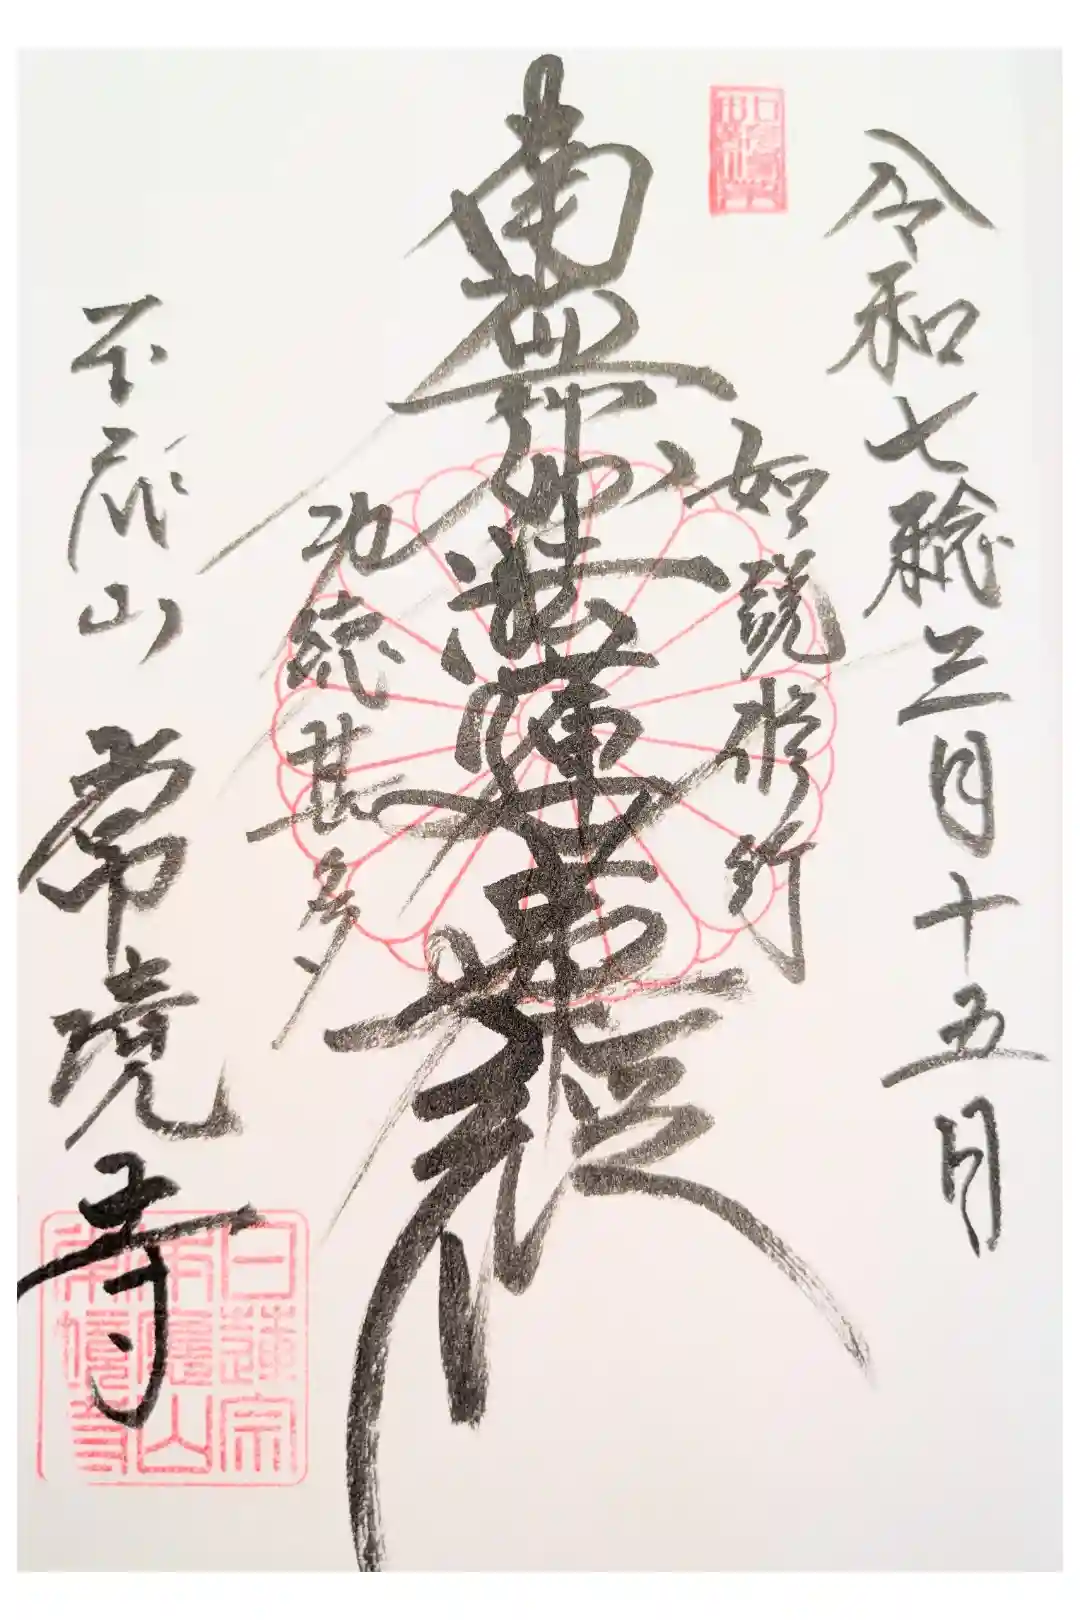 令和七稔三月十五日
如説修行
南無妙法蓮華経
功徳甚多
本応山 常境寺
日蓮宗
本應山
常境寺